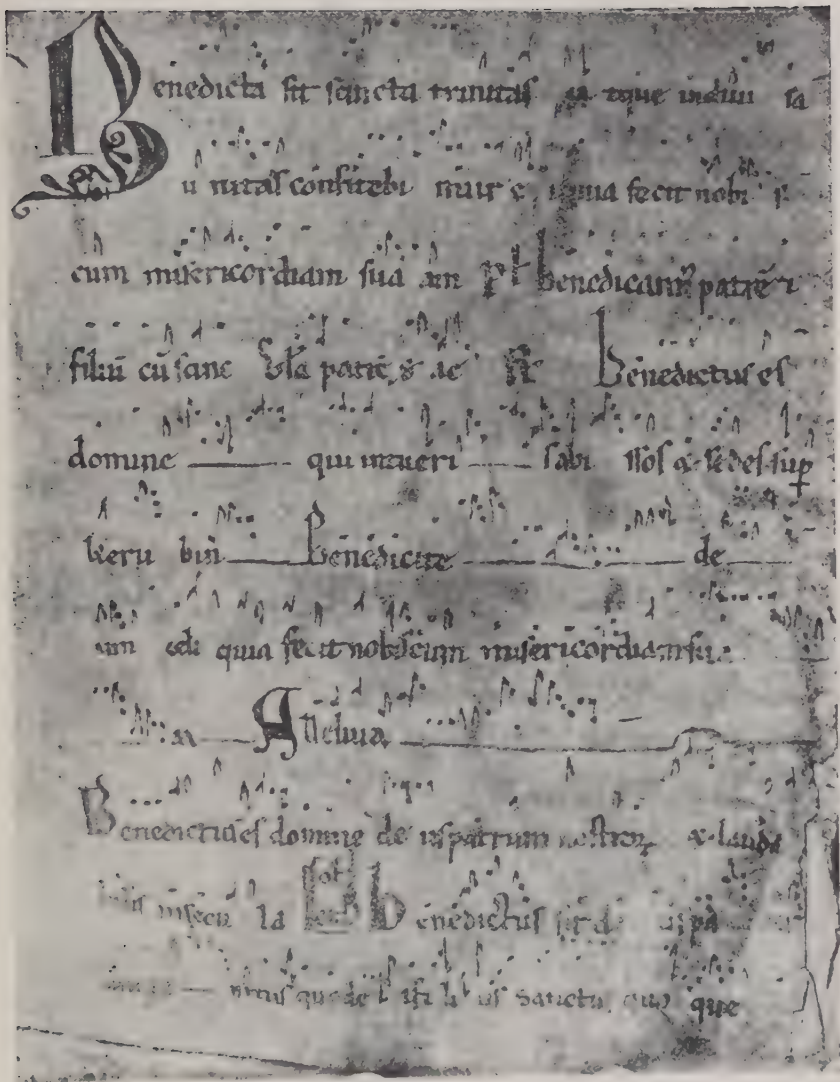 Benedicta sit sancta trinitas at que indiui sa
u nitas confitebi mur e quia fecit nobi s
cum misericordiam sua am ps benedicam' patrē ⁊
filiū cū sanc Gła patri, & ae Benedictus es
domine qui intueris abi ssos & sedes sup
keru bin Benedicite de
um celi quia fecit nobiscum misericordiam sua
Alleluia
Benedictus es domine de us patrum nostroꝝ & lauda
bilis insecu la Benedictus sit d us pa
nitus qu de i fi li us sanctu quoque